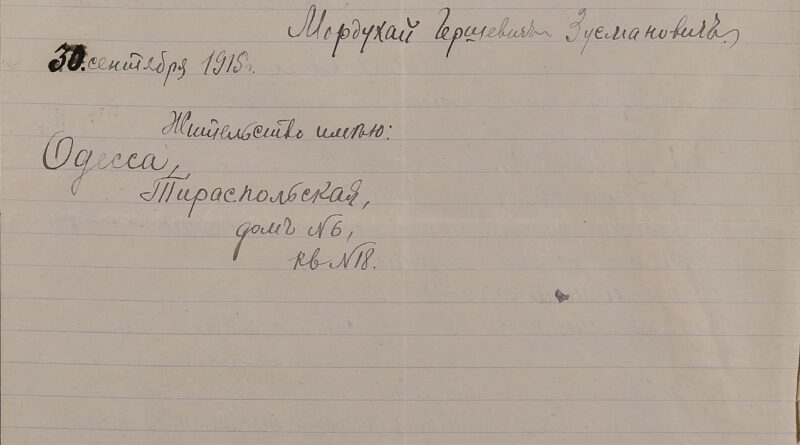 Мордухай Гершевичъ Зусмановичъ.
30. сентября 1915г.
Жительство имѣю:
Одесса,
Тираспольская,
домъ №6,
кв №18.